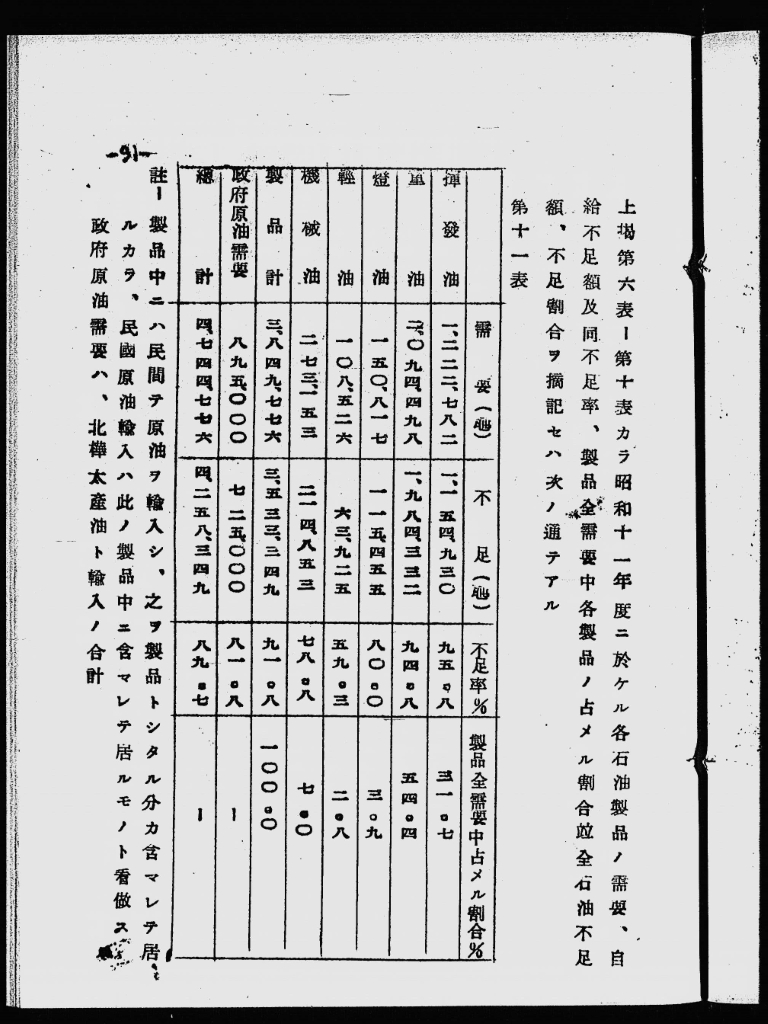 上掲第六表ー第十表カラ昭和十一年度ニ於ケル各石油製品ノ需要、自
給不足額及同不足率、製品全需要中各製品ノ占メル割合竝全石油不足
額、不足割合ヲ摘記セハ次ノ通テアル
第十一表
需要(竏) 不足(竏) 不足率% 製品全需要中占メル割合%
揮發油 一、二二二、七八二 一、一五四、九三〇 九五・八 三一・七
重油 二、〇九四、四九八 一、九八四、三三二 九四・八 五四・四
燈油 一五〇、八一七 一一五、四五五 八〇・〇 三・九
輕油 一〇八、五二六 六三、九二五 五九・三 二・八
機械油 二七三、一五三 二一四、八五三 七八・八 七・〇
製品計 三、八四九、七七六 三、五三三、三四九 九一・八 一〇〇・〇
政府原油需要 八九五、〇〇〇 七二五、〇〇〇 八一・八 ー
總計 四、七四四、七七六 四、二五八、三四九 八九・七 ー
註ー製品中ニハ民間テ原油ヲ輸入シ、之ヲ製品トシタル分カ含マレテ居
ルカラ、民國原油輸入ハ此ノ製品中ニ含マレテ居ルモノト看做ス
政府原油需要ハ、北樺太産油ト輸入ノ合計
-91-